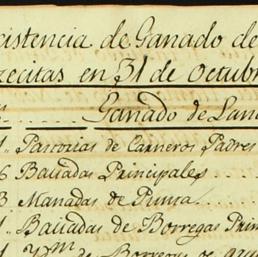 istencia de Ganado de
zecitas en 31 de Octubr
Ganado de Lan
Pastorias de Carneros Padres
6 Baciadas Principales
3 Manadas de Punta
1.. Baciadas de Borregas Prin
1 Yd^m de Borregos